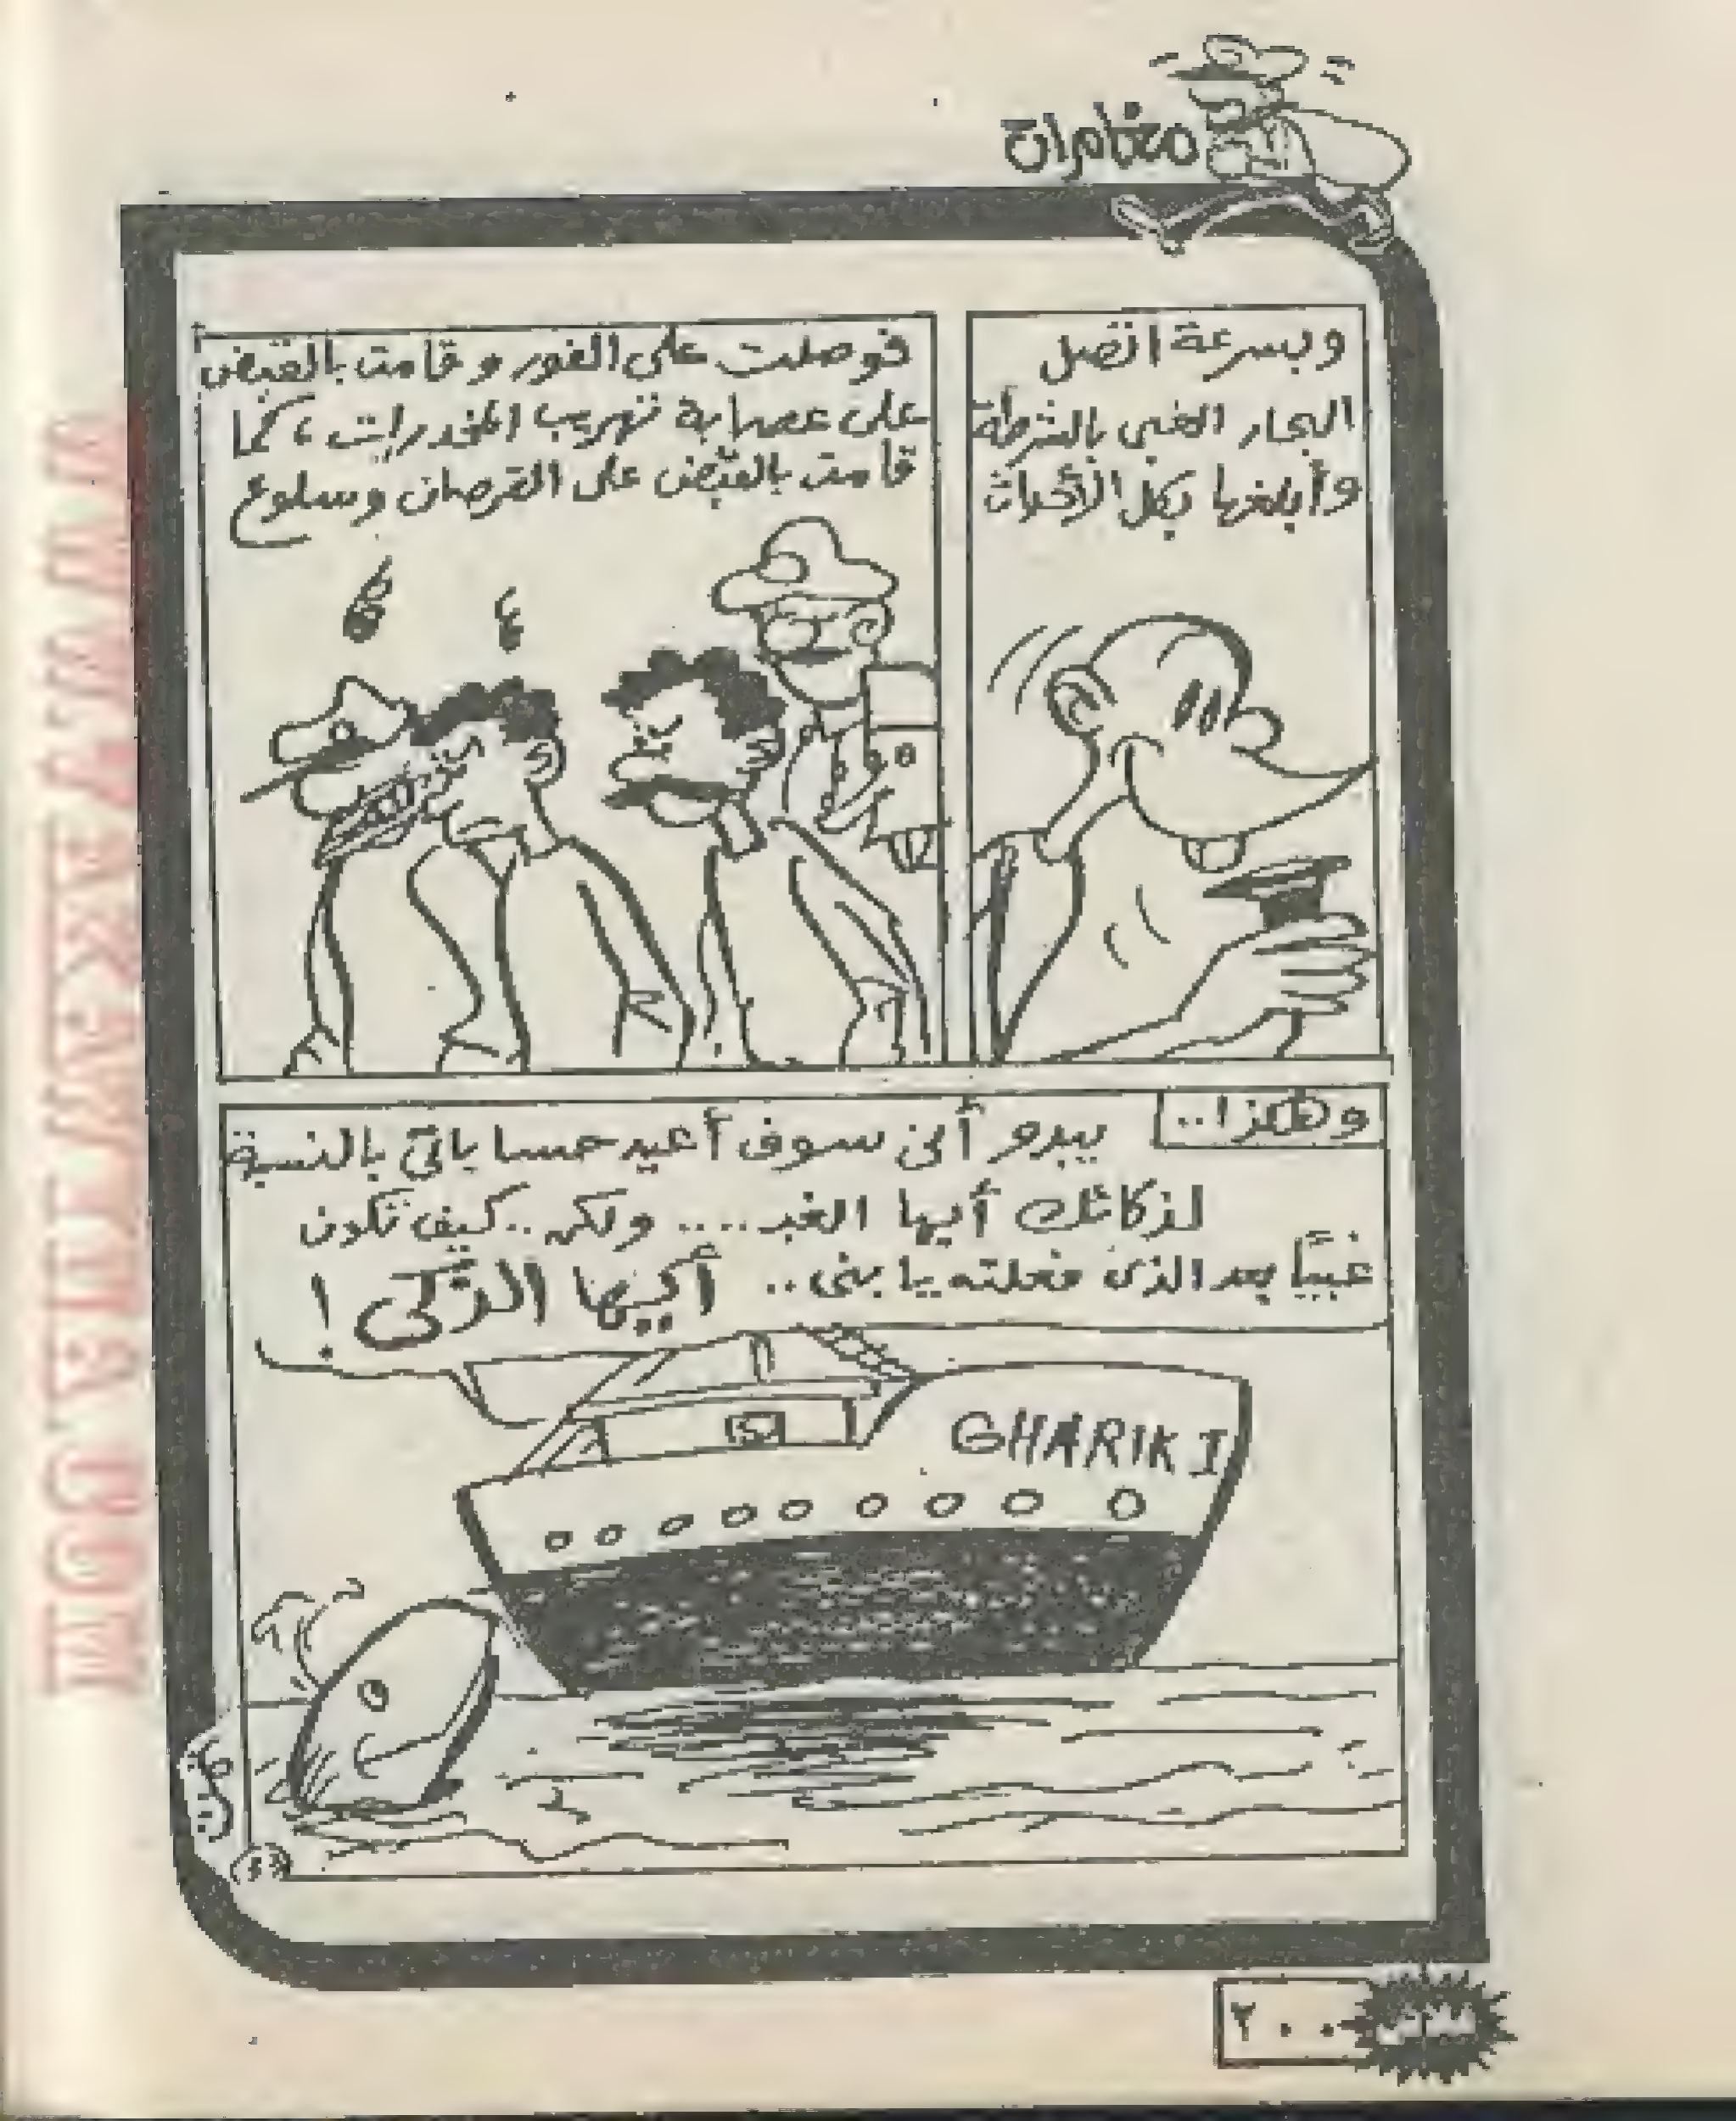 مغامرات
وبسرعة اتصل
البحار الغبى بالشرطة
وأبلغها بكل الأحداث
فوصلت على الفور وقامت بالقبض
على عصابة تهريب المخدرات، كما
قامت بالقبض على القرصان وسلوع
وهكذا..
يبدو أنى سوف أعيد حساباتى بالنسبة
لذكائك أيها الغبـ .... ولكن.. كيف تكون
غبيًا بعد الذى فعلته يا بنى.. أيها الذكى!
GHARIK I
فلاش
٢٠٠